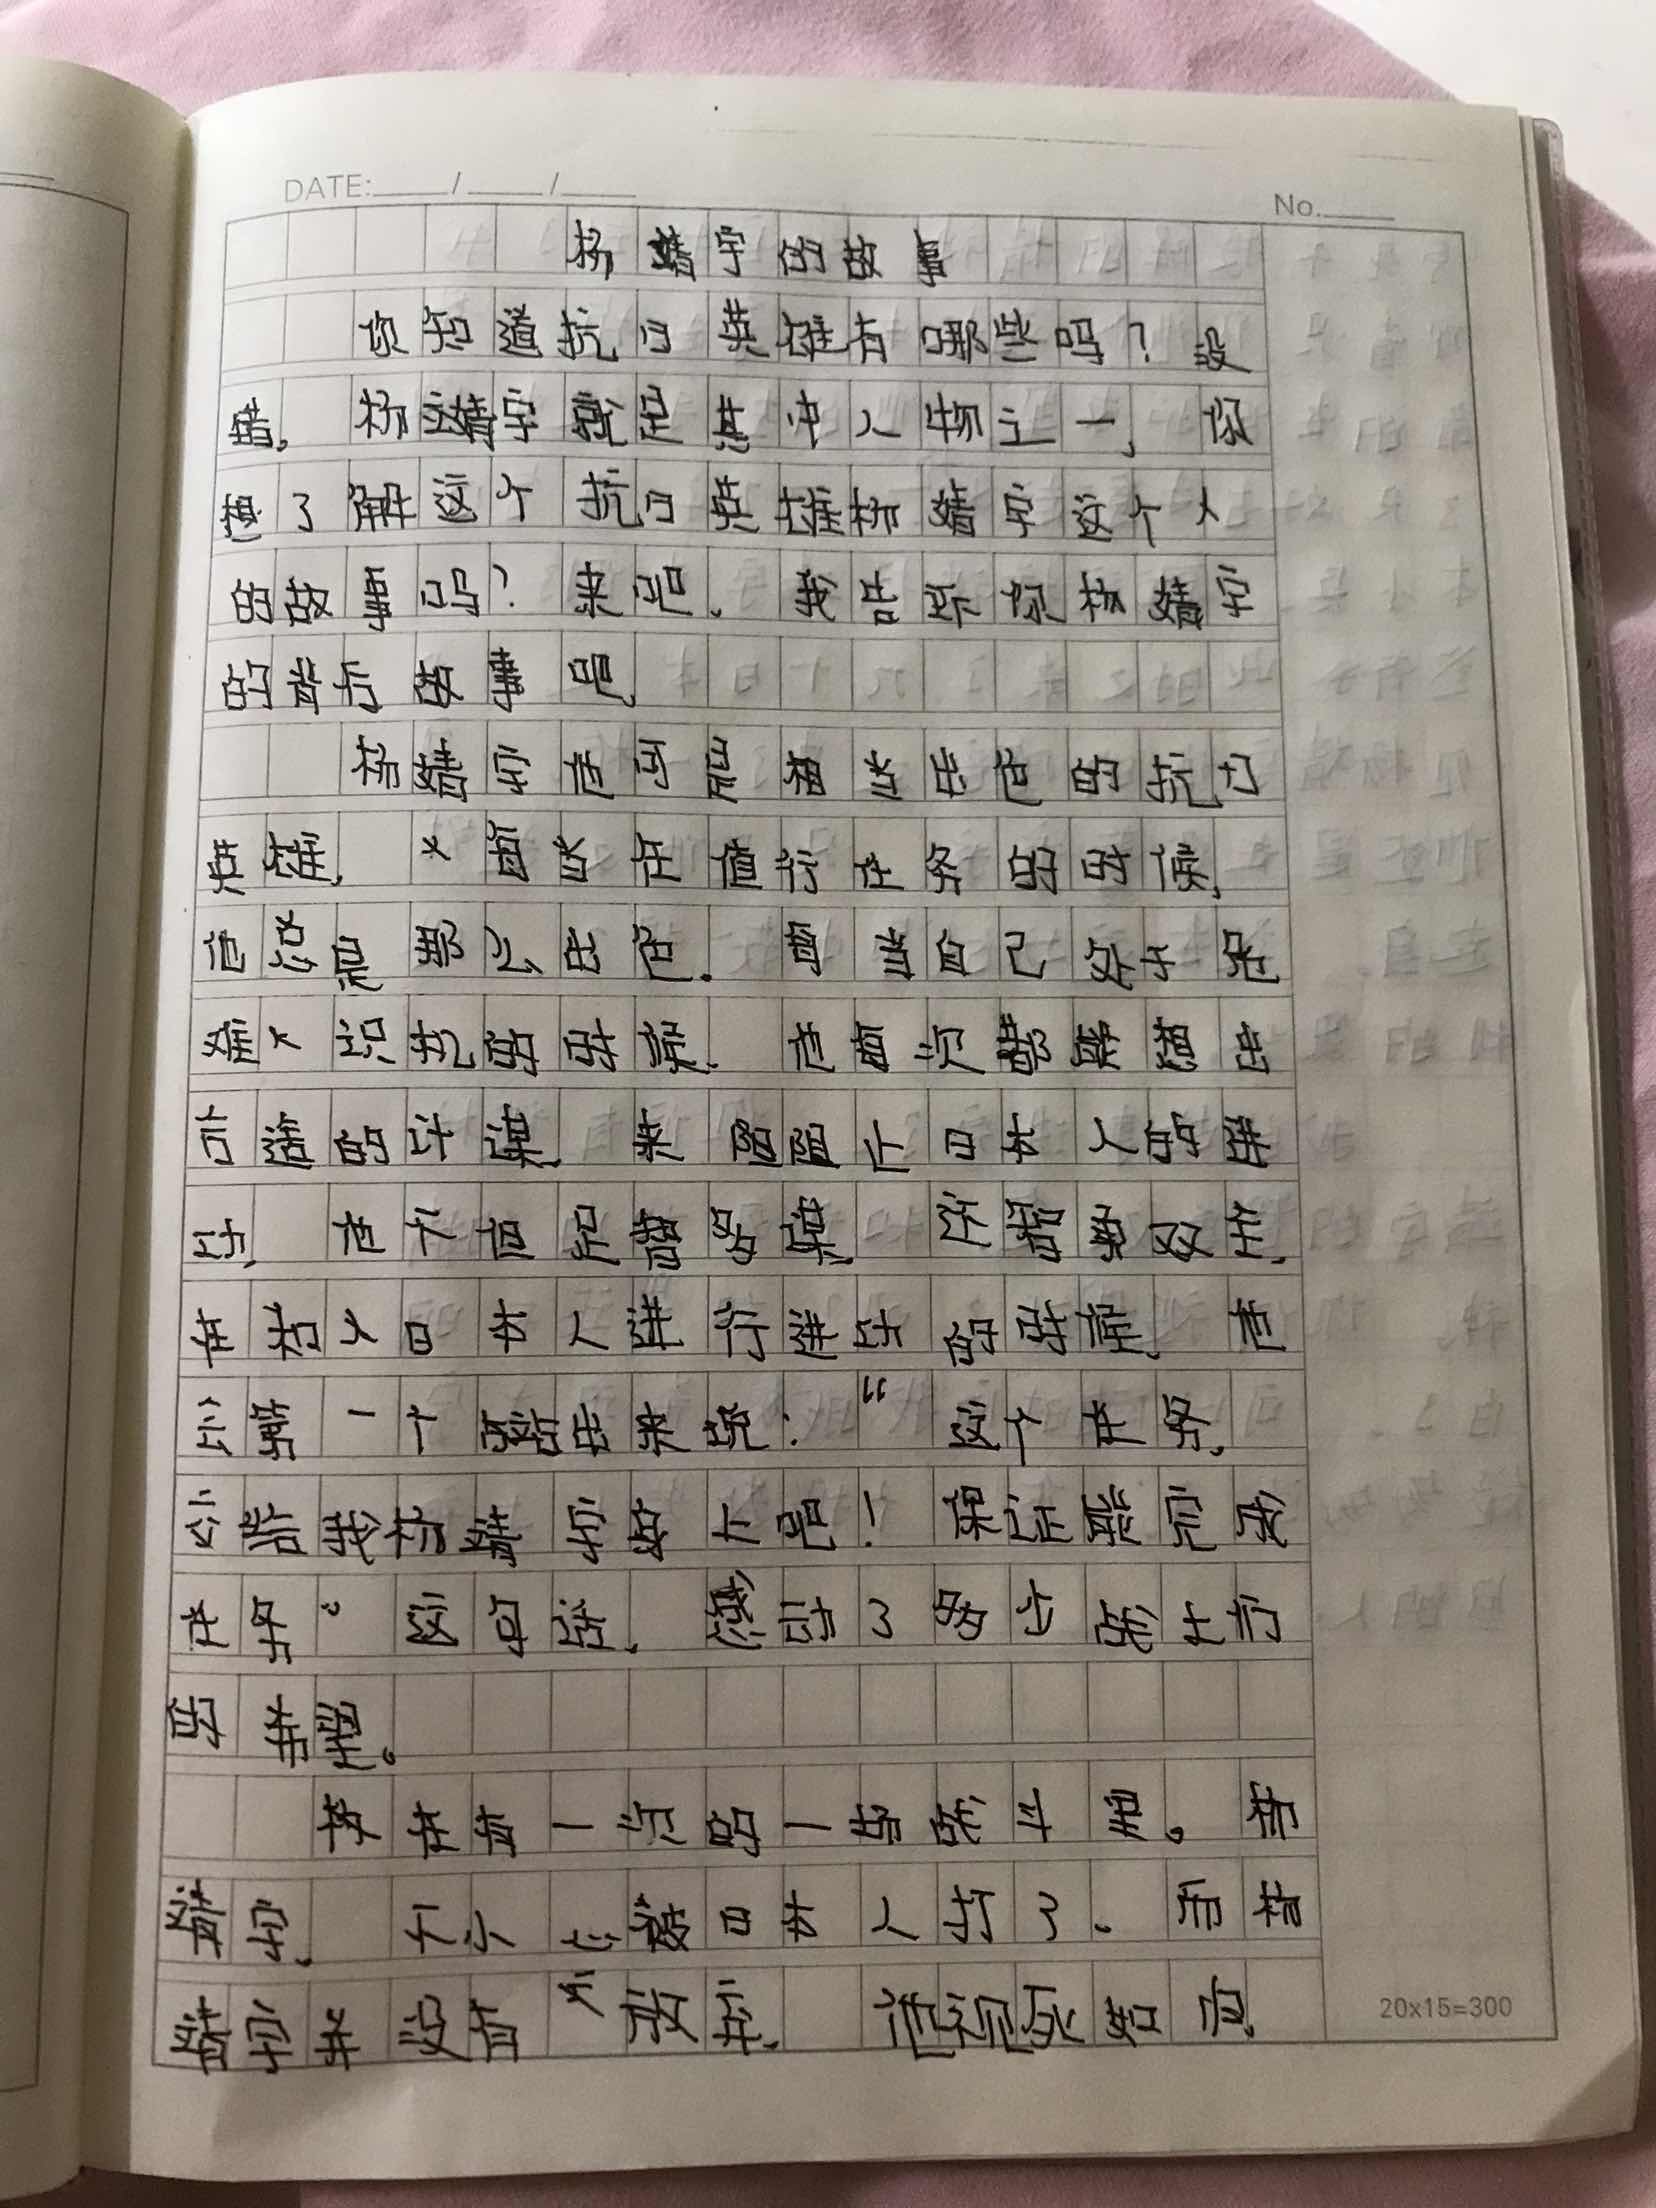 DATE: / /
No.
杨靖宇的故事
你知道抗日英雄有哪些吗？没
错，杨靖宇就是其中人物之一，你
想了解这个抗日英雄杨靖宇这个人
的故事吗？来吧，我告诉你杨靖宇
的背后故事吧
杨靖宇他可是相当出色的抗日
英雄，每当在值行任务的时候，
他总是那么出色。每当自己处于危
难时的时候，他每次都能想出
合适的计谋，来阻止日本人的进
攻，他不但足智多谋，还智勇双全，
在和日本人进行进攻的时候，他
第一个站出来说：“这个任务，
交给我杨靖宇好了吧！保证能完成
任务。这句话，激励了多少战士们
的希望。
在有一次的一场战斗里。杨
靖宇，不小心被日本人打了。而杨
靖宇并没有放弃，他视死如归，
20x15=300